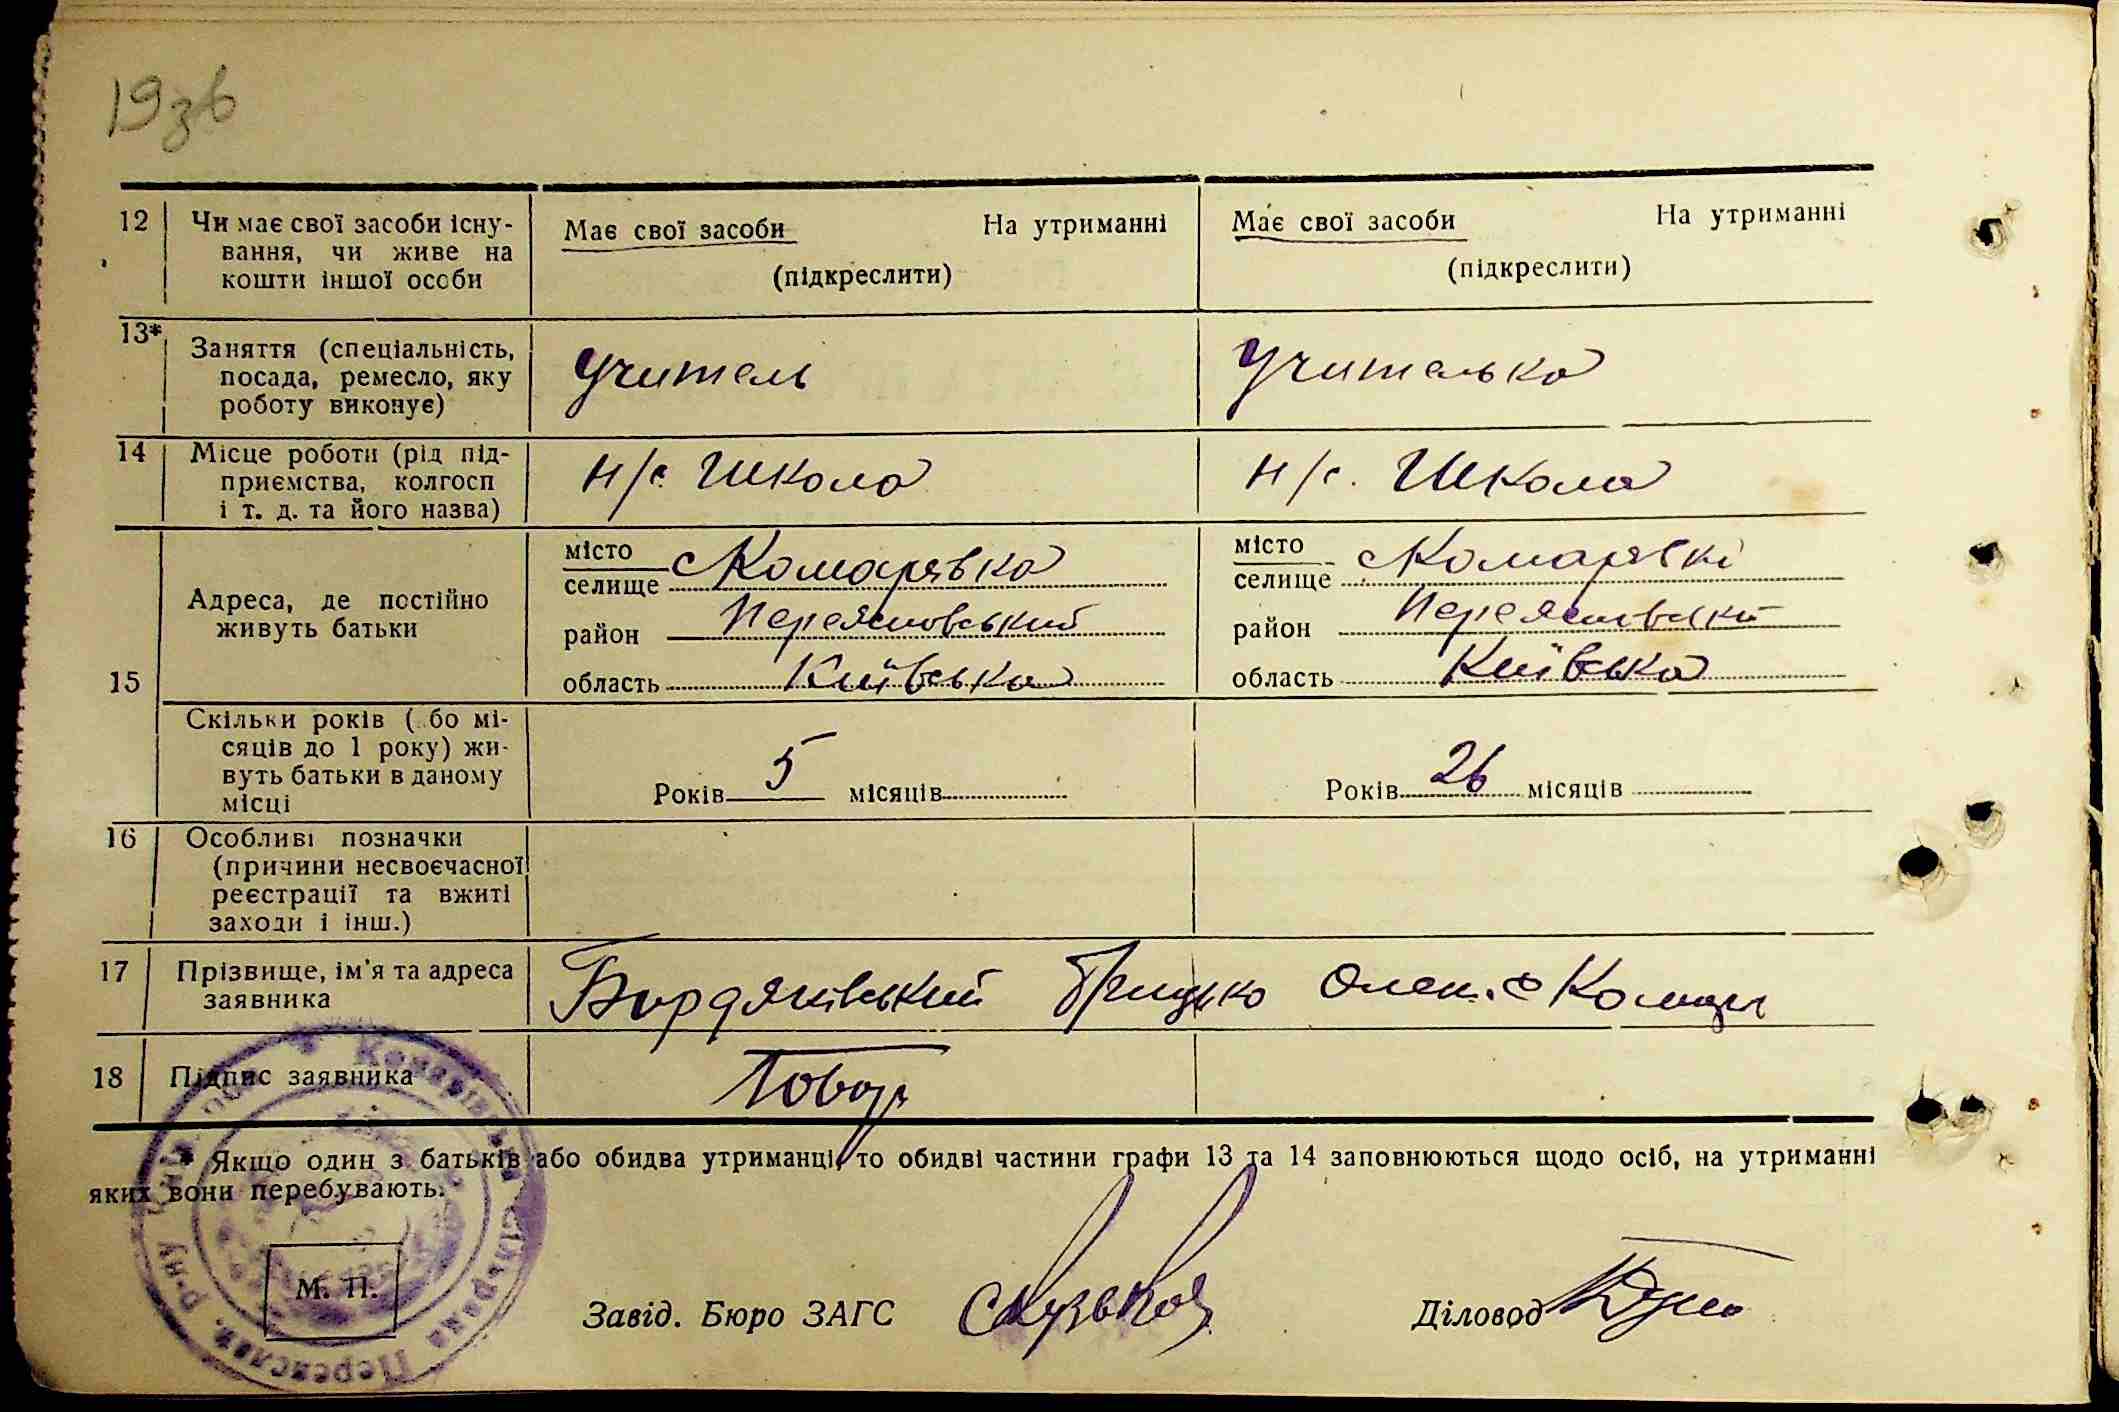 19зв
12 Чи має свої засоби існу- Має свої засоби На утриманні Має свої засоби На утриманні
вання, чи живе на (підкреслити) (підкреслити)
кошти іншої особи
13* Заняття (спеціальність, учитель учителька
посада, ремесло, яку
роботу виконує)
14 Місце роботи (рід під- н/с. Школа н/с. Школа
приємства, колгосп
і т. д. та його назва)
15 Адреса, де постійно живуть батьки
місто селище с Комарівка місто селище с Комарівкі
район Переяславський район Переяславський
область Київська область Київська
Скільки років (бо мі-
сяців до 1 року) жи-
вуть батьки в даному
місці
Років 5 місяців Років 26 місяців
16 Особливі позначки
(причини несвоєчасної
реєстрації та вжиті
заходи і інш.)
17 Прізвище, ім'я та адреса
заявника
Грицько Олек. с
18 Підпис заявника
* Якщо один з батьків або обидва утриманці, то обидві частини графи 13 та 14 заповнюються щодо осіб, на утриманні
яких вони перебувають.
М. П.
Завід. Бюро ЗАГС Діловод